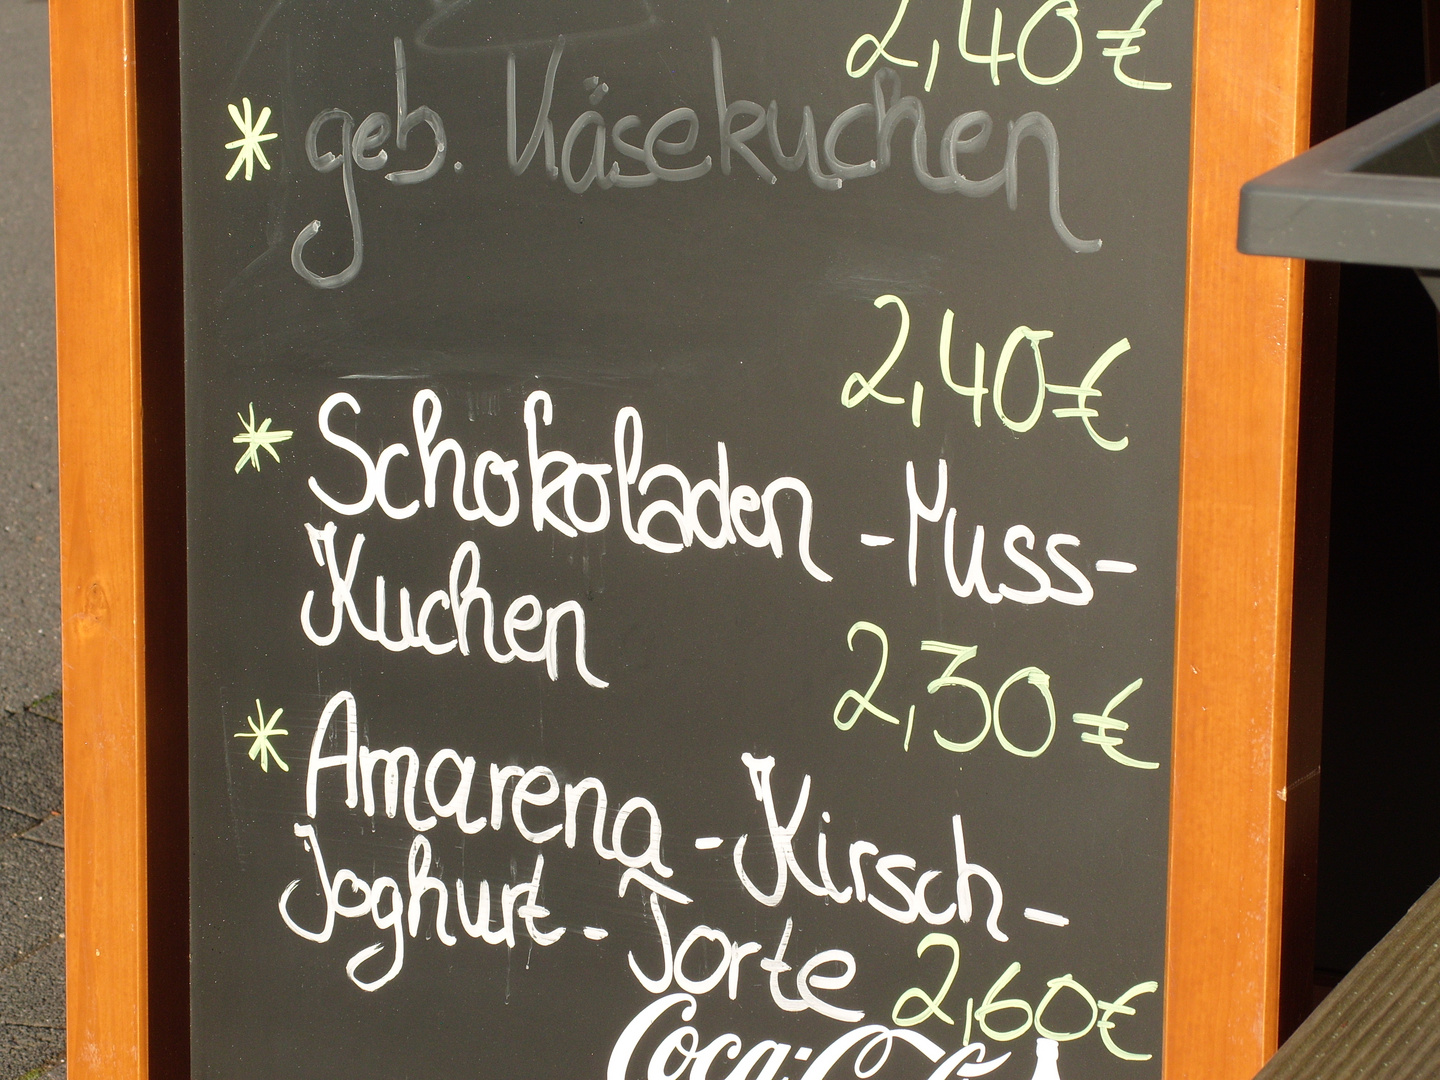 2,40€
* geb. Käsekuchen
2,40€
* Schokoladen-Nuss-
Kuchen
2,30€
* Amarena-Kirsch-
Joghurt-Torte 2,60€
Coca-Co